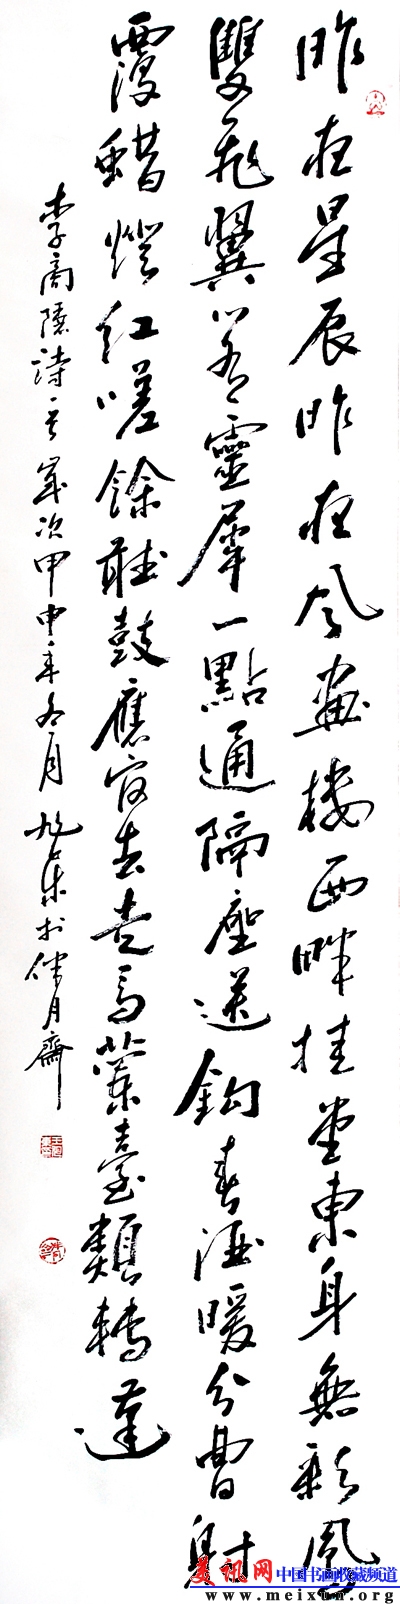 昨夜星辰昨夜風畫樓西畔桂堂東身無彩鳳
雙飛翼心有靈犀一點通隔座送鈎春酒暖分曹射
覆蜡燈紅嗟餘聽鼓應官去走馬蘭臺類轉蓬
李商隱詩 歲次甲申年冬月 於伴月齋
美讯网 中国书画收藏频道
www.meixun.org